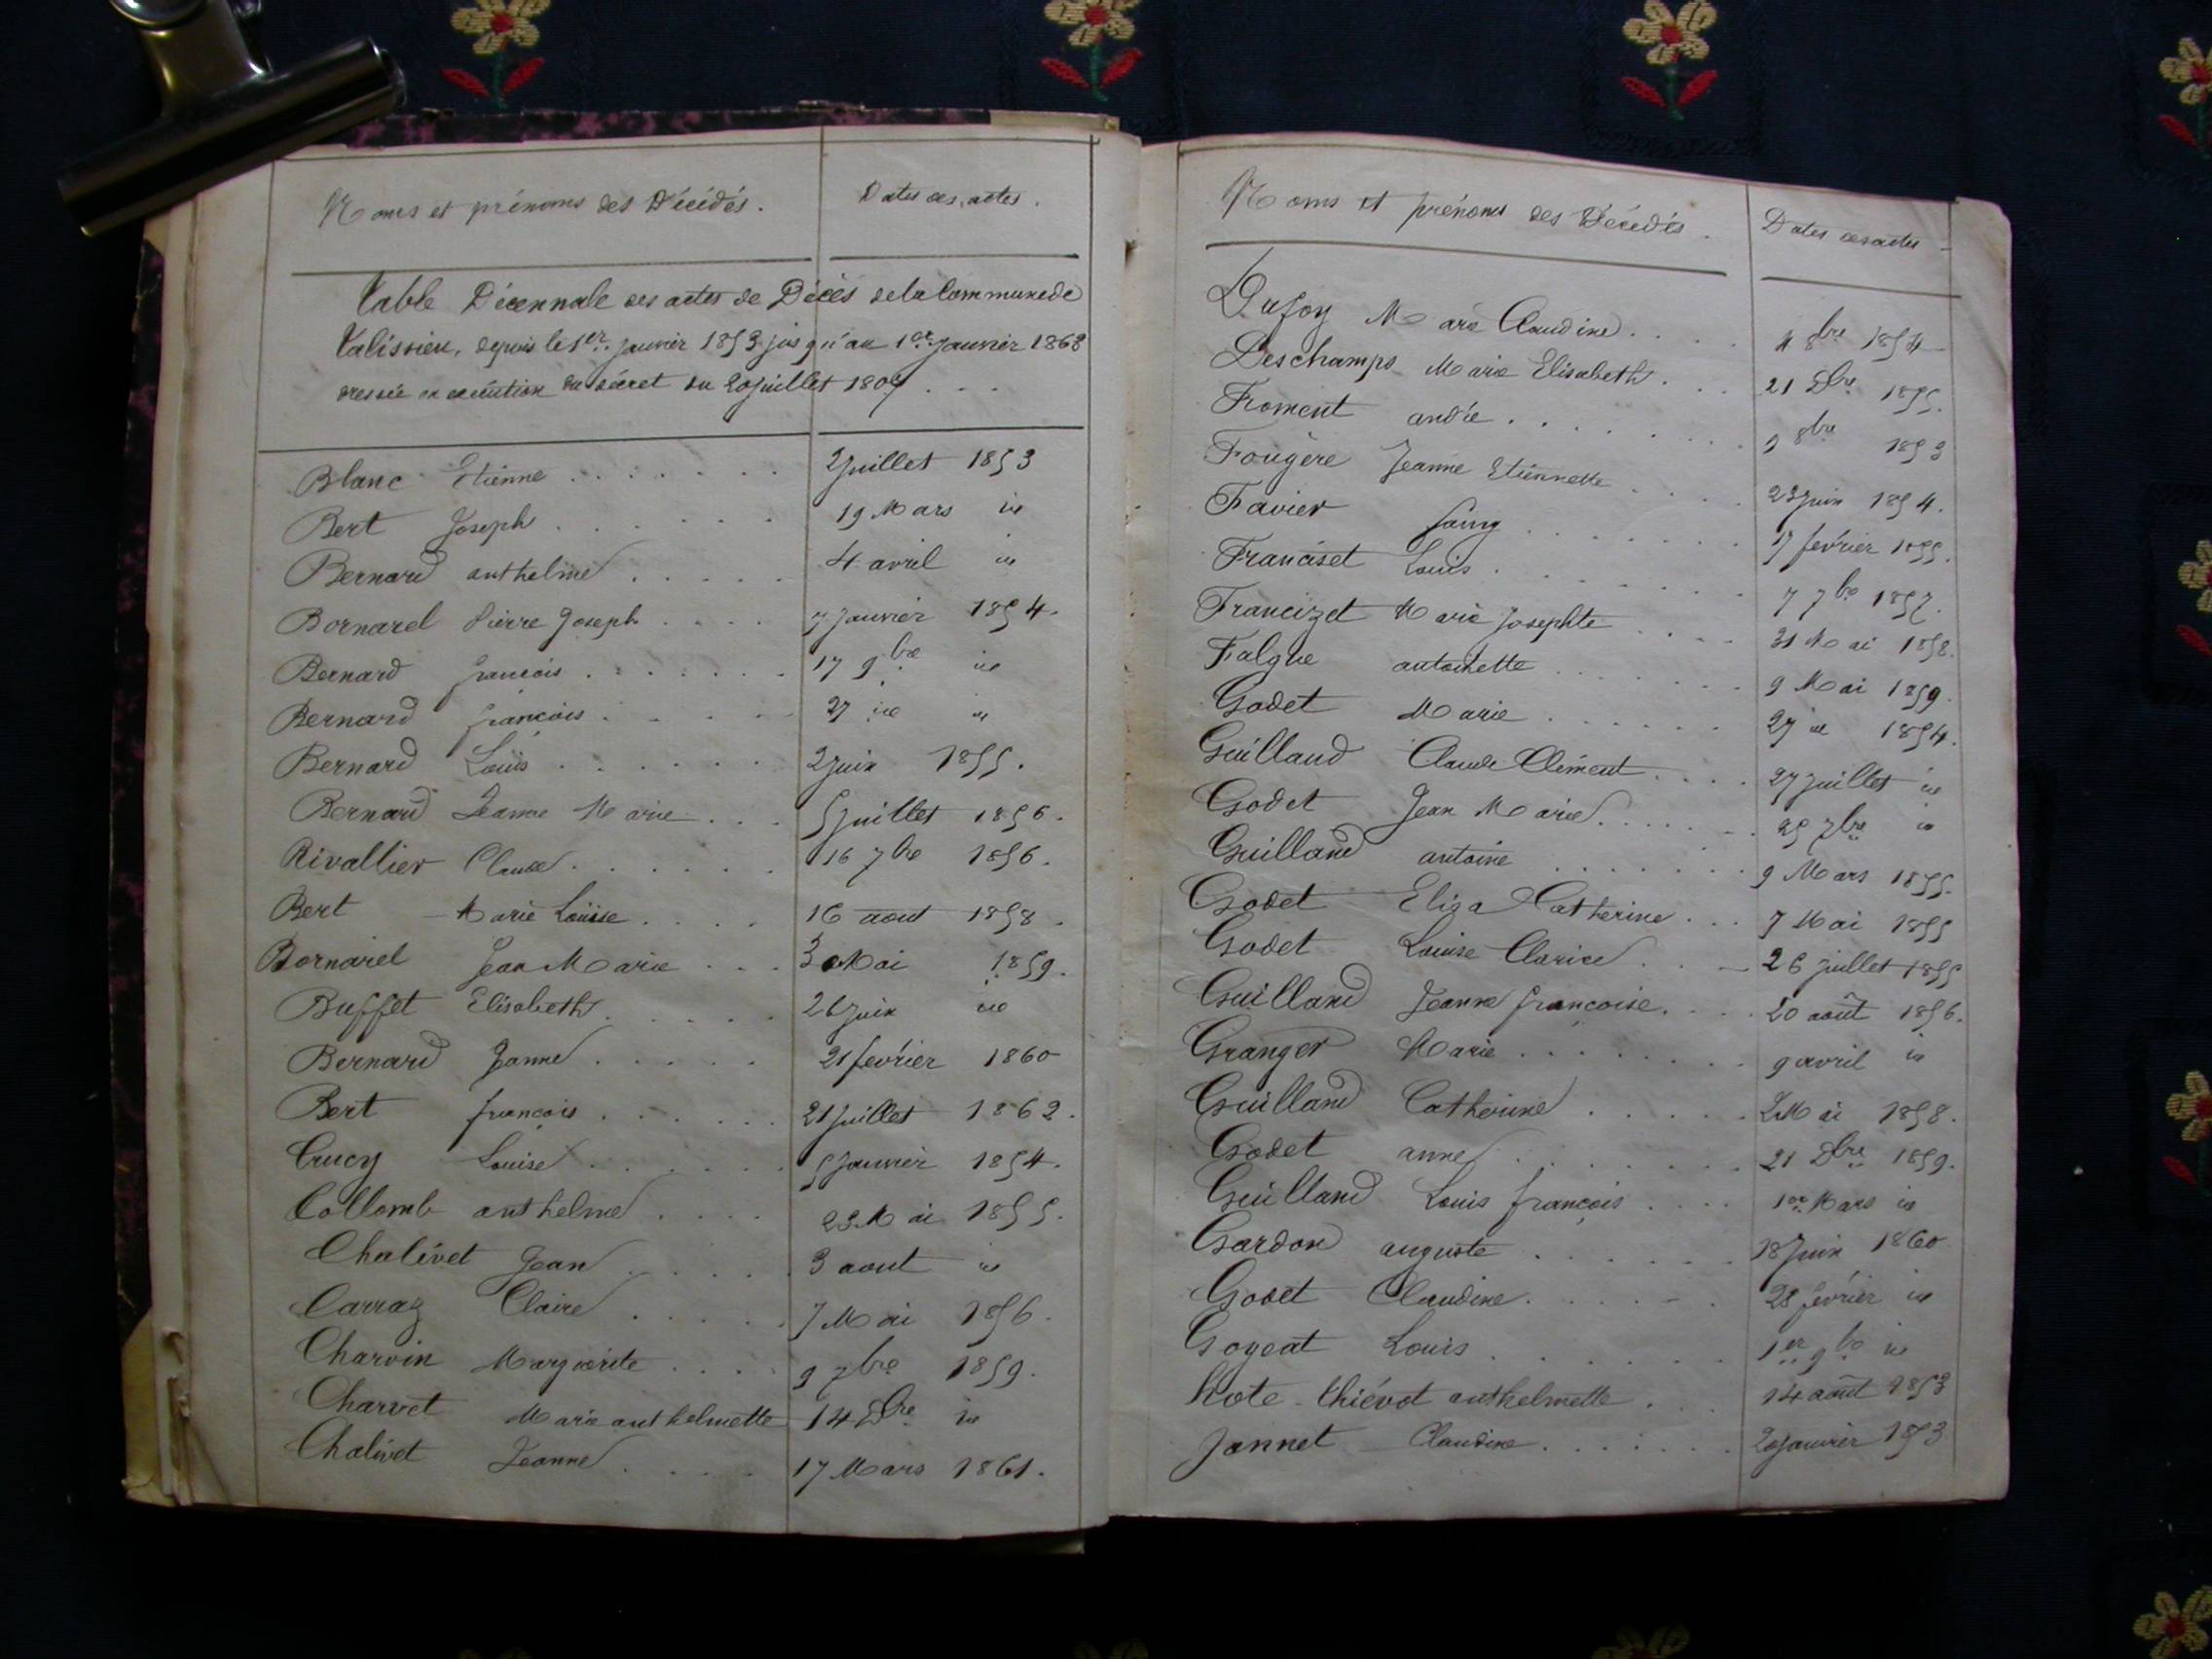 Noms et prénoms des Décédés. Dates des actes.
Table Décennale des actes de Décès de la Commune de
Talissieu, depuis le 1er. janvier 1853 jusqu'au 1er. janvier 1863
dressée en exécution du décret du 20 juillet 1807 . . .
Blanc Etienne . . . . . . . 2 juillet 1853
Bert Joseph . . . . . . 19 Mars id
Bernard anthelme . . . . . 4 avril id
Bornarel Pierre Joseph . . . . 7 janvier 1854.
Bernard françois . . . . . . . 17 9bre id
Bernard françois . . . . . 27 id id
Bernard Louis . . . . . . 2 juin 1855.
Bernard Jeanne Marie . . . 5 juillet 1856.
Rivallier Claude . . . . . . 16 7bre 1856.
Bert Marie Louise . . . . 16 aout 1858.
Bornarel Jean Marie . . . 3 Mai 1859.
Buffet Elisabeth . . . . . 26 juin id
Bernard Jeanne . . . . . 21 février 1860
Bert françois . . . . . . 21 juillet 1862.
Crucy Louise . . . . . . 5 janvier 1854.
Collomb anthelme . . . . 23 Mai 1855.
Chalivet Jean . . . . . 3 aout id
Carraz Claire . . . . . 7 Mai 1856.
Charvin Marguerite . . . . 9 7bre 1859.
Charvet Marie anthelmette 14 Dbre id
Chalivet Jeanne . . . . 17 Mars 1861.
Noms et prénoms des Décédés. Dates des actes
Dufoy Marie Claudine . . . . 4 8bre 1854
Deschamps Marie Elisabeth . . . 21 Dbre 1855.
Froment andré . . . . . . . . . 9 8bre 1853
Fougère Jeanne Etiennette . . . . 23 juin 1854.
Favier fanny . . . . . . . 17 février 1855.
Franciset Louis . . . . . . . 7 7bre 1857.
Francizet Marie Josephte . . . . 31 Mai 1858.
Falque antoinette . . . . . . . 9 Mai 1859.
Godet Marie . . . . . . . 27 id 1854.
Guilland Claude Clément . . . . 27 juillet id
Godet Jean Marie . . . . . . 25 7bre id
Guilland antoine . . . . . . . 9 Mars 1855.
Godet Eliza Catherine . . . 7 Mai 1855
Godet Louise Clarice . . . 26 juillet 1855
Guilland Jeanne françoise . . . . 20 août 1856.
Granger Marie . . . . . . . . 9 avril id
Guilland Catherine . . . . . 2 Mai 1858.
Godet anne . . . . . . . . 21 Dbre 1859.
Guilland Louis françois . . . . 1er Mars id
Gardon auguste . . . . . . 18 juin 1860
Godet Claudine . . . . . 28 février id
Goyeat Louis . . . . . . 1er 9bre id
hote-thiévot anthelmette . . . 14 août 1853
Jannet Claudine . . . . . . . 20 janvier 1853